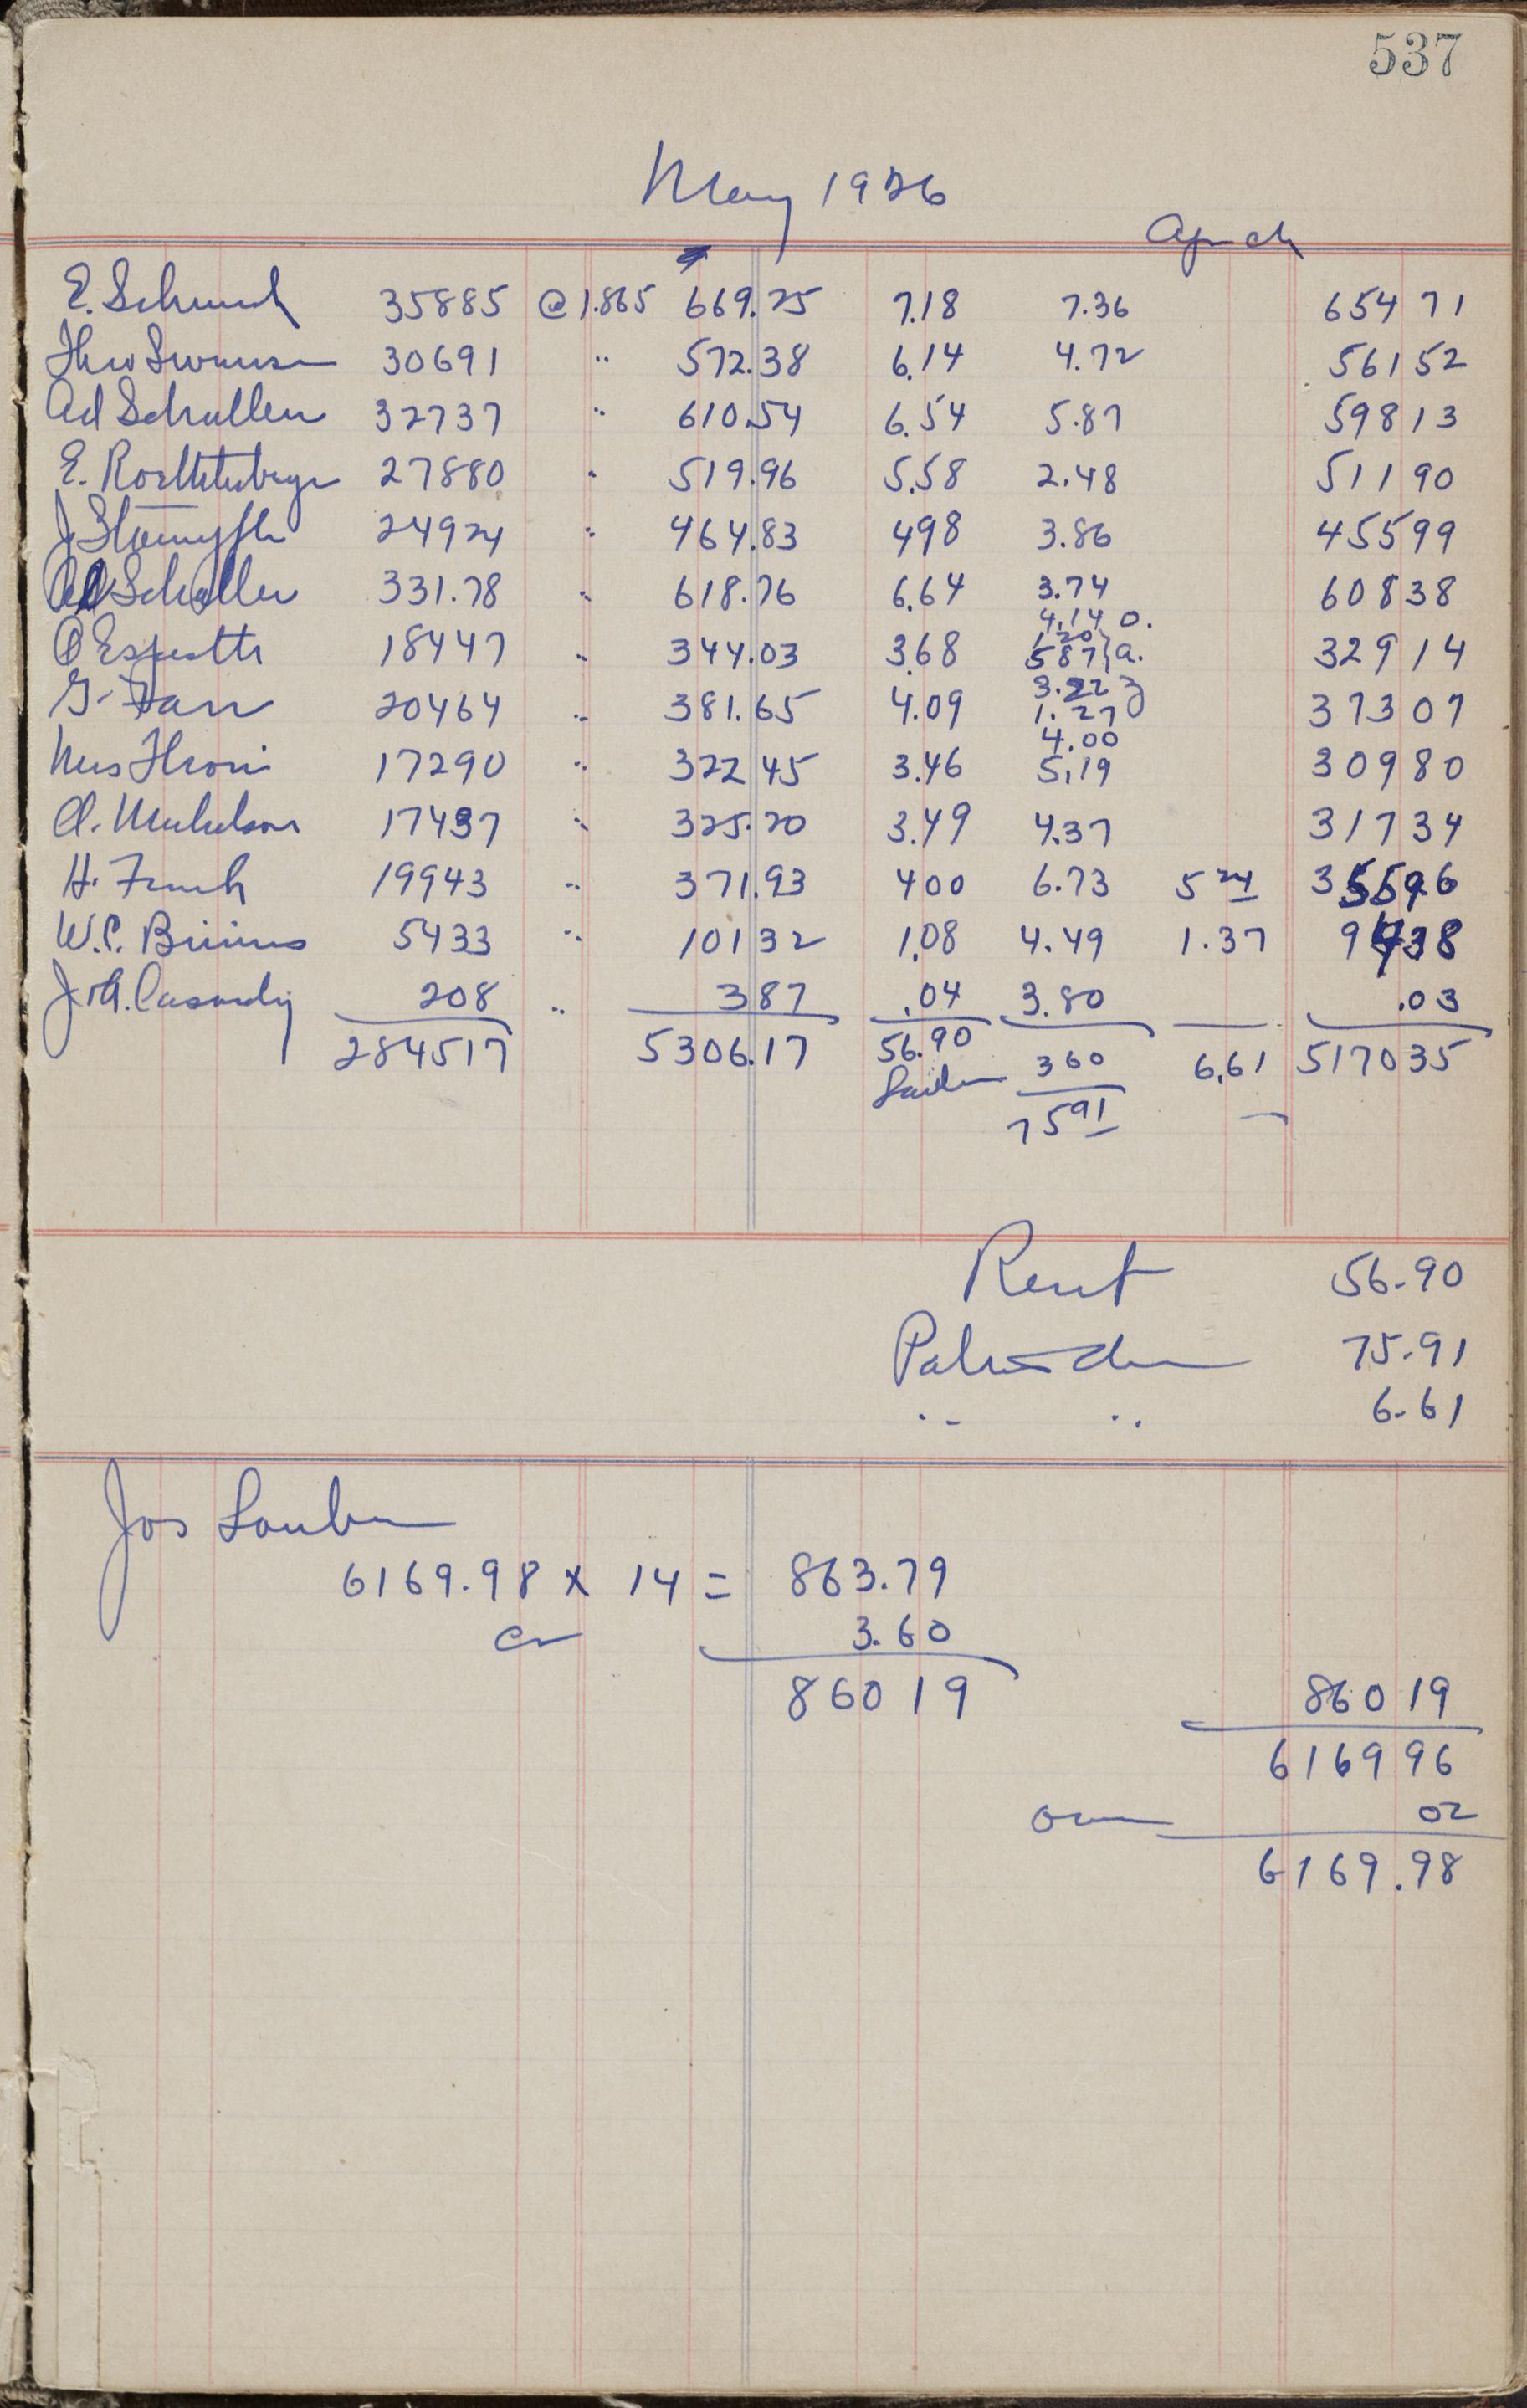 537
May 1926
Apr ch
E. Schmidt 35885 @ 1.865 669.25 7.18 7.36 654 71
Theo Swensen 30691 " 572.38 6.14 4.72 561 52
Ad Schuller 32737 " 610.54 6.54 5.87 598 13
E. 27880 " 519.96 5.58 2.48 511 90
J 24924 " 464.83 498 3.86 455 99
Schuller 331.78 " 618.76 6.64 3.74 608 38
4.14 O.
1.20
18447 " 344.03 368 587 } a. 329 14
3.22 }
G. Farr 20464 " 381.65 4.09 1.27 373 07
4.00
17290 " 322 45 3.46 5.19 309 80
17437 " 325.20 3.49 4.37 317 34
H. 19943 " 371.93 400 6.73 5 24 355 96
W.C. 5433 " 101 32 1.08 4.49 1.37 94 38
208 " 3 87 .04 3.80 .03
284517 5306.17 56.90 360 6.61 5170 35
75 91
Rent 56-90
75-91
" " 6-61
Jos
6169.98 x 14 = 863.79
Cr 3.60
860 19 860 19
6169 96
02
6169.98